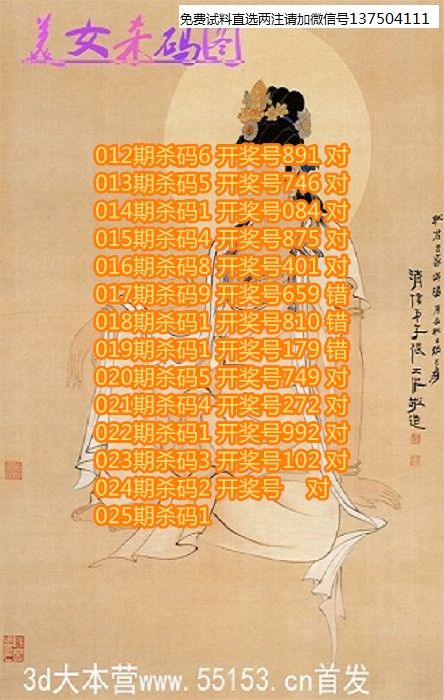 免费试料直选两注请加微信号137504111
美女杀码图
012期杀码6 开奖号891 对
013期杀码5 开奖号746 对
014期杀码1 开奖号084 对
015期杀码4 开奖号875 对
016期杀码8 开奖号401 对
017期杀码9 开奖号659 错
018期杀码1 开奖号810 错
019期杀码1 开奖号179 错
020期杀码5 开奖号749 对
021期杀码4 开奖号272 对
022期杀码1 开奖号992 对
023期杀码3 开奖号102 对
024期杀码2 开奖号 对
025期杀码1
3d大本营www.55153.cn首发